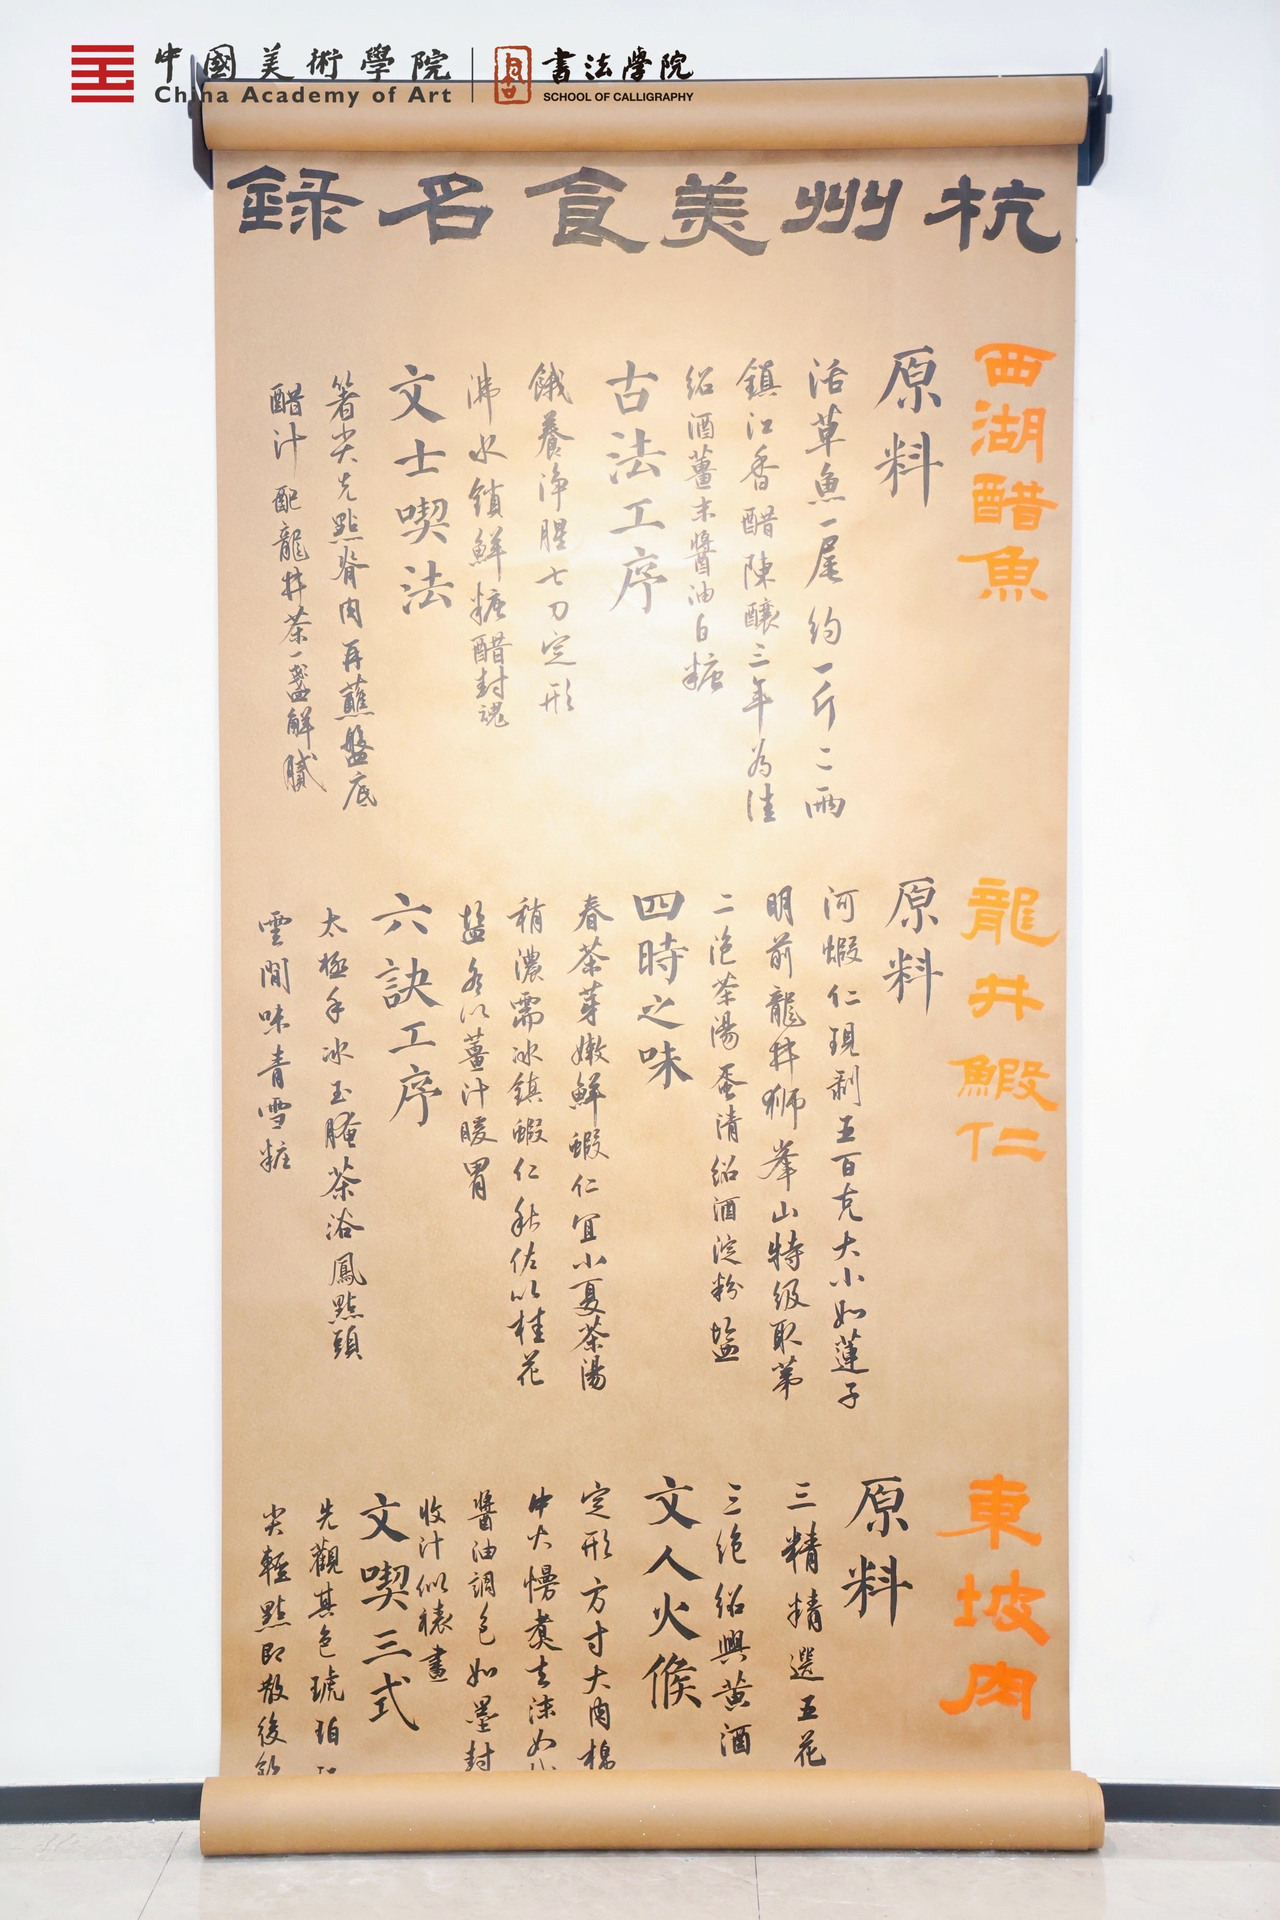 中國美術學院
China Academy of Art
書法學院
SCHOOL OF CALLIGRAPHY
杭州美食名録
西湖醋魚
原料
活草魚一尾約一斤二兩
鎮江香醋陳釀三年為佳
紹酒薑末醬油白糖
古法工序
餓養淨腥七刀定形
沸水鎖鮮糖醋封魂
文士喫法
箸尖先點脊肉再蘸盤底
醋汁配龍井茶一盞解膩
龍井鰕仁
原料
河蝦仁現剥五百克大小如蓮子
明前龍井獅峯山特级取第
二泡茶湯蛋清紹酒淀粉鹽
四時之味
春茶芽嫩鮮蝦仁宜小夏茶湯
稍濃需冰鎮蝦仁秋佐以桂花
鹽冬以薑汁暖胃
六訣工序
太極手冰玉腌茶浴鳳點頭
雲間味青雪粧
東坡肉
原料
三精精選五花
三绝紹興黄酒
文人火候
定形方寸大肉棉
中火慢煮去沫如
醬油調色如墨封
收汁似裱畫
文喫三式
先觀其色琥珀
尖輕點即散後